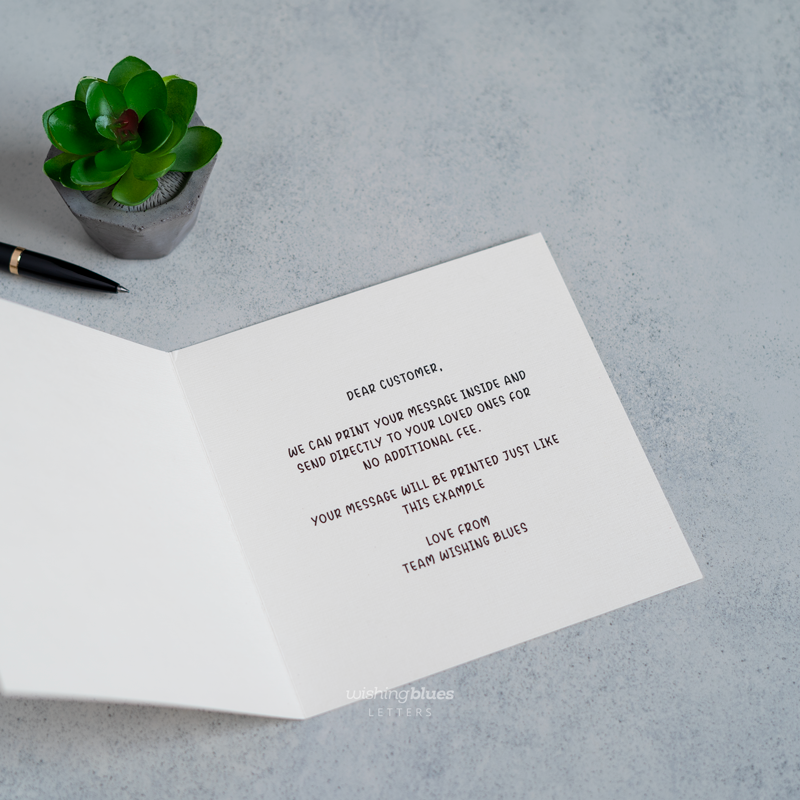 DEAR CUSTOMER,
WE CAN PRINT YOUR MESSAGE INSIDE AND
SEND DIRECTLY TO YOUR LOVED ONES FOR
NO ADDITIONAL FEE.
YOUR MESSAGE WILL BE PRINTED JUST LIKE
THIS EXAMPLE
LOVE FROM
TEAM WISHING BLUES
wishingblues
LETTERS